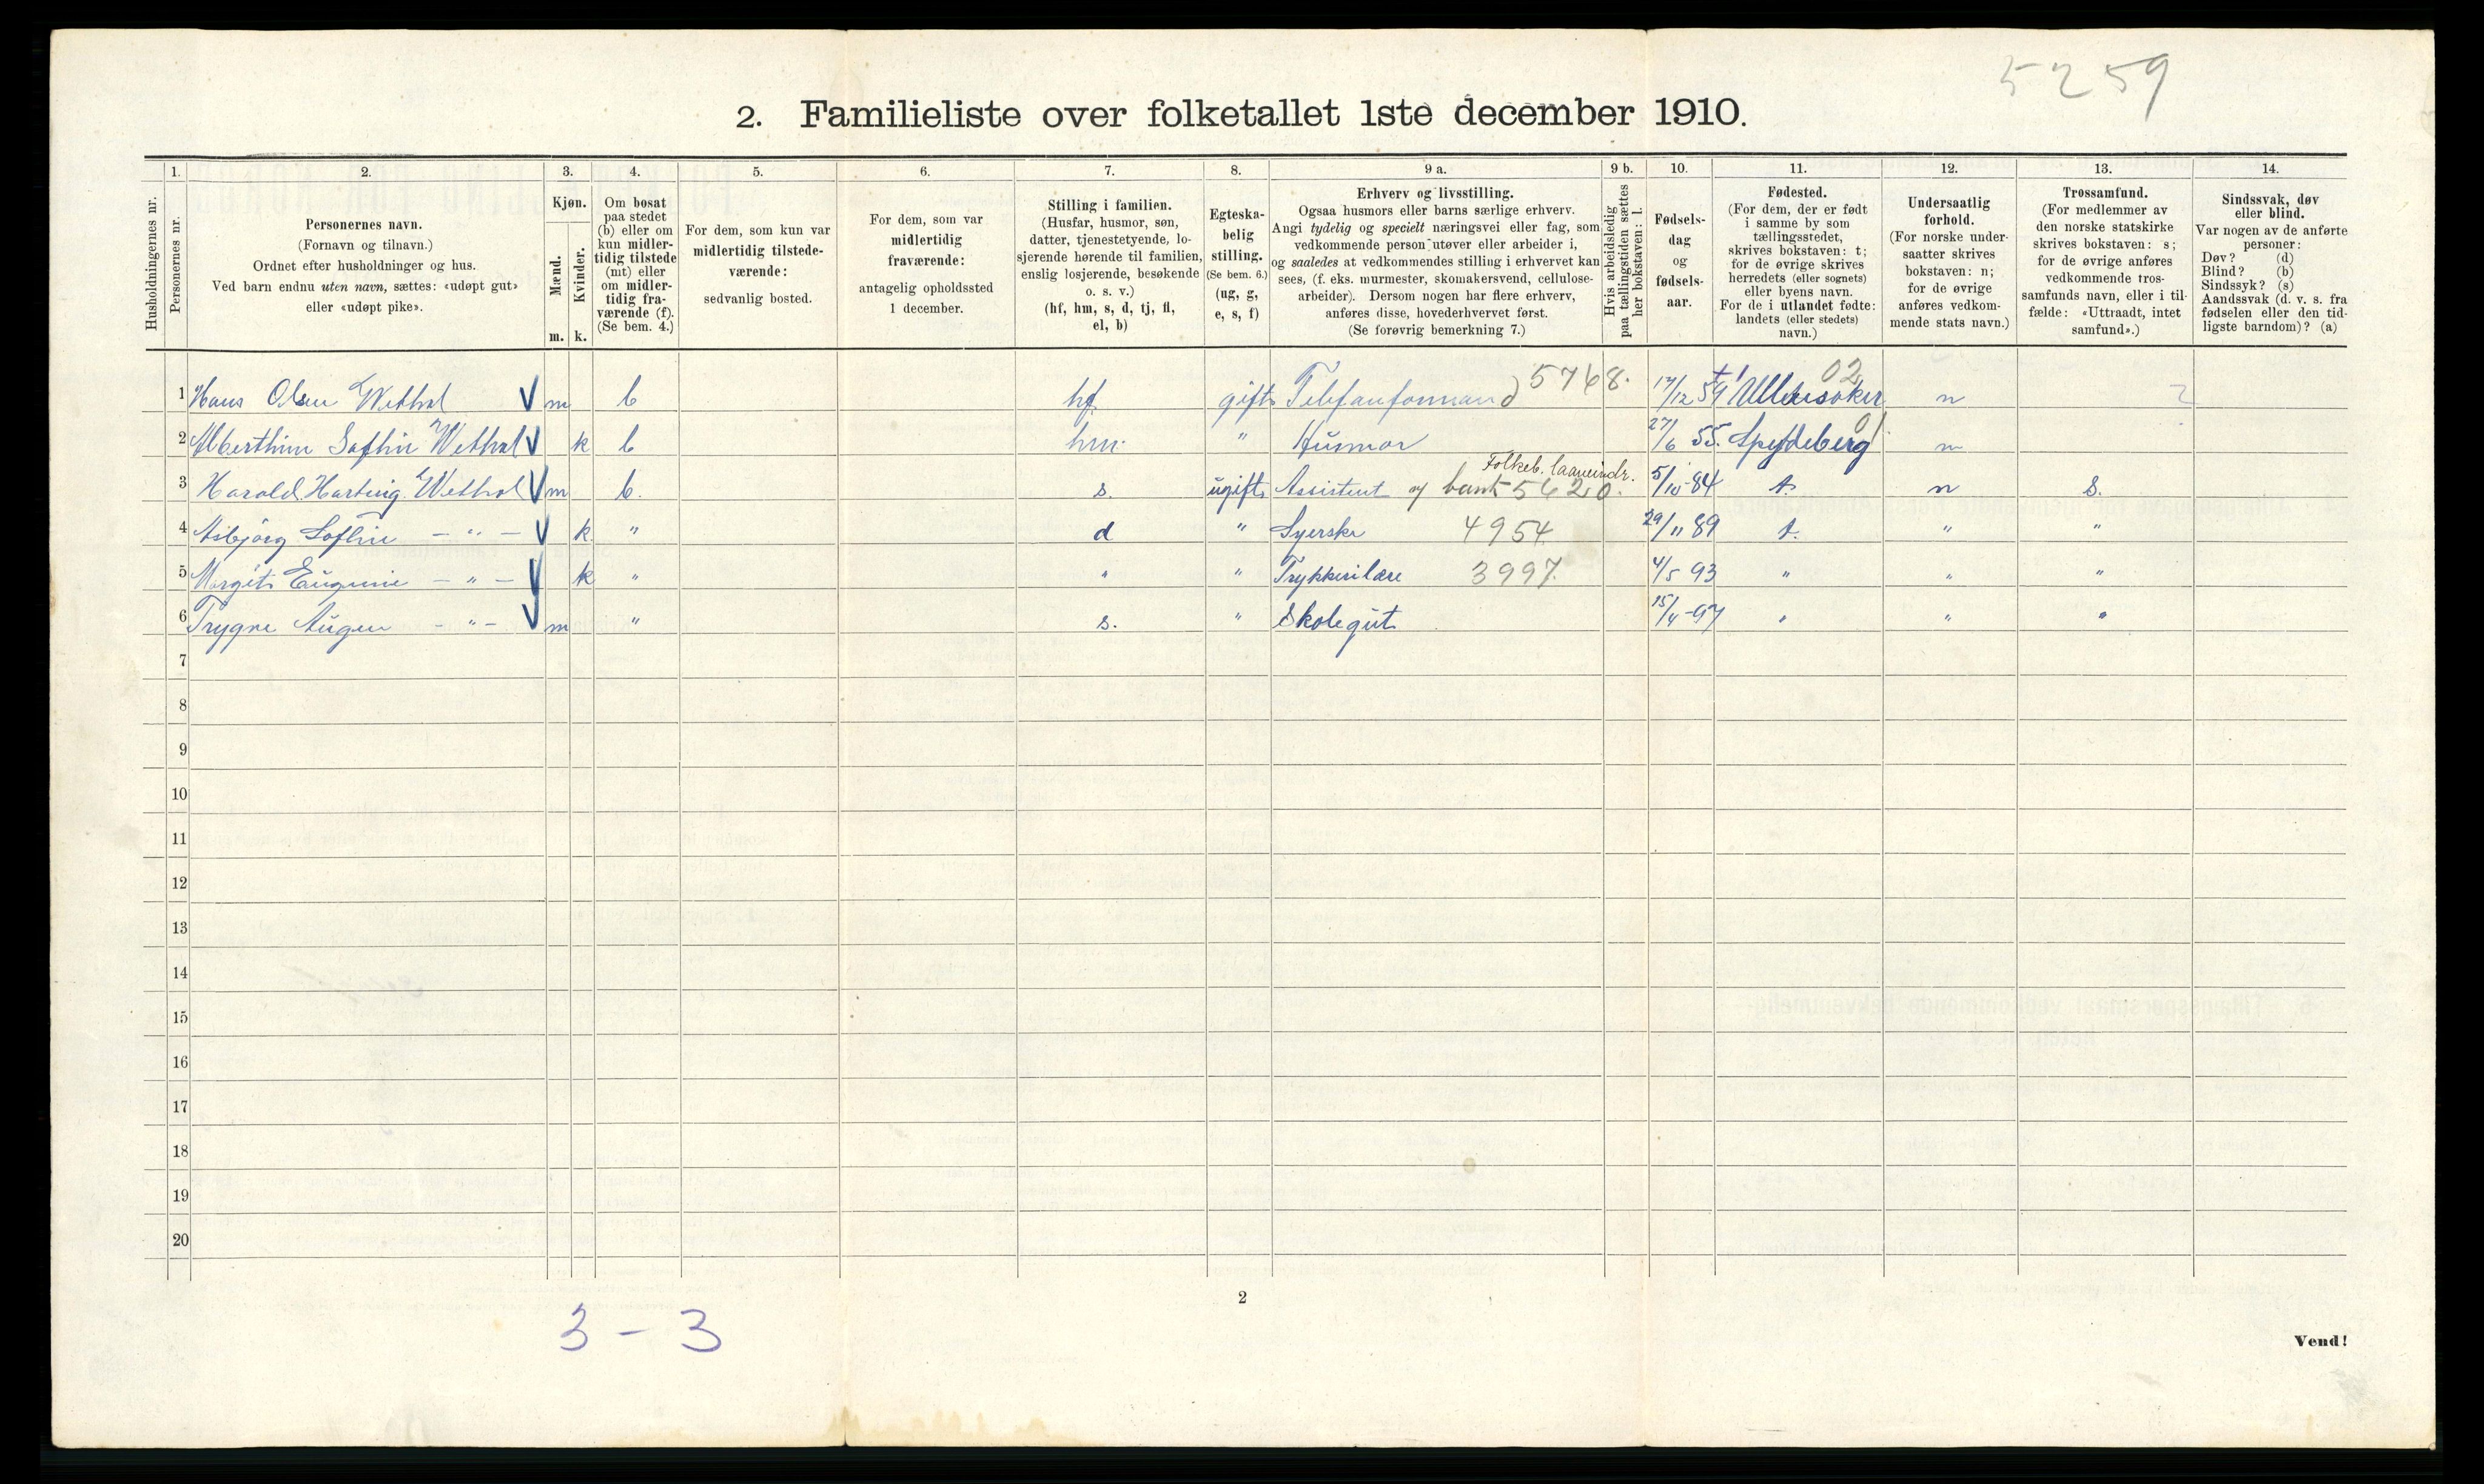 5259
2. Familieliste over folketallet 1ste december 1910.
1. 2. 3. 4. 5. 6. 7. 8. 9 a. 9 b. 10. 11. 12. 13. 14.
Husholdningernes nr.
Personernes nr.
Personernes navn.
(Fornavn og tilnavn.)
Ordnet efter husholdninger og hus.
Ved barn endnu uten navn, sættes: «udøpt gut»
eller «udøpt pike».
Kjøn.
Mænd.
Kvinder.
m. k.
Om bosat
paa stedet
(b) eller om
kun midler-
tidig tilstede
(mt) eller
om midler-
tidig fra-
værende (f).
(Se bem. 4.)
For dem, som kun var
midlertidig tilstede-
værende:
sedvanlig bosted.
For dem, som var
midlertidig
fraværende:
antagelig opholdssted
1 december.
Stilling i familien.
(Husfar, husmor, søn,
datter, tjenestetyende, lo-
sjerende hørende til familien,
enslig losjerende, besøkende
o. s. v.)
(hf, hm, s, d, tj, fl,
el, b)
Egteska-
belig
stilling.
(Se bem. 6.)
(ug, g,
e, s, f)
Erhverv og livsstilling.
Ogsaa husmors eller barns særlige erhverv.
Angi tydelig og specielt næringsvei eller fag, som
vedkommende person utøver eller arbeider i,
og saaledes at vedkommendes stilling i erhvervet kan
sees, (f. eks. murmester, skomakersvend, cellulose-
arbeider). Dersom nogen har flere erhverv,
anføres disse, hovederhvervet først.
(Se forøvrig bemerkning 7.)
Hvis arbeidsledig
paa tællingstiden sættes
her bokstaven: l.
Fødsels-
dag
og
fødsels-
aar.
Fødested.
(For dem, der er født
i samme by som
tællingsstedet,
skrives bokstaven: t;
for de øvrige skrives
herredets (eller sognets)
eller byens navn.
For de i utlandet fødte:
landets (eller stedets)
navn.)
Undersaatlig
forhold.
(For norske under-
saatter skrives
bokstaven: n;
for de øvrige
anføres vedkom-
mende stats navn.)
Trossamfund.
(For medlemmer av
den norske statskirke
skrives bokstaven: s;
for de øvrige anføres
vedkommende tros-
samfunds navn, eller i til-
fælde: «Uttraadt, intet
samfund».)
Sindssvak, døv
eller blind.
Var nogen av de anførte
personer:
Døv? (d)
Blind? (b)
Sindssyk? (s)
Aandssvak (d. v. s. fra
fødselen eller den tid-
ligste barndom)? (a)
1 Hans Olsen Wethal m b hf gift Telefonformand 5768. 17/12 59 Ullensaker 02 n
2 Alberthine Sofhie Wethal k b hm. " Husmor 27/6 55. Spydeberg 01 n
3 Harold Hartvig Wethal m b. s. ugift Assistent Folkeb. laaneindr. bank 5620. 5/10-84 t. n s.
4 Asbjörg Sofhie - " - k. " d " Syerske 4954 29/11 89 t. " "
5 Margit Eugenie - " - k " " " Trykkerilære 3997. 4/5 93 " " "
6 Trygve Augen - " - m " s. " Skolegut 15/4-97 " " "
7
8
9
10
11
12
13
14
15
16
17
18
19
20
2
3 - 3
Vend!